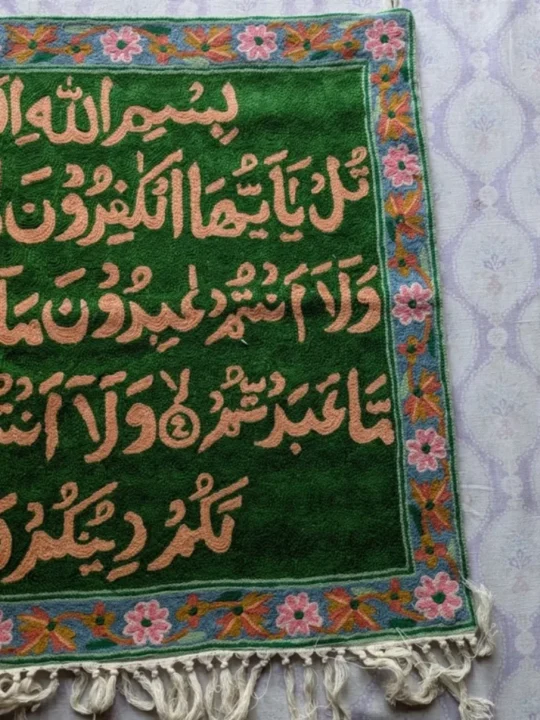 بِسْمِ اللّٰهِ
قُلْ يَاَيُّهَا الْكٰفِرُوْنَ
وَلَا اَنْتُمْ عٰبِدُوْنَ مَا
مَّا عَبَدْتُّمْ ۙ﴿٤﴾ وَلَا اَنْتُ
لَكُمْ دِيْنُكُمْ وَ